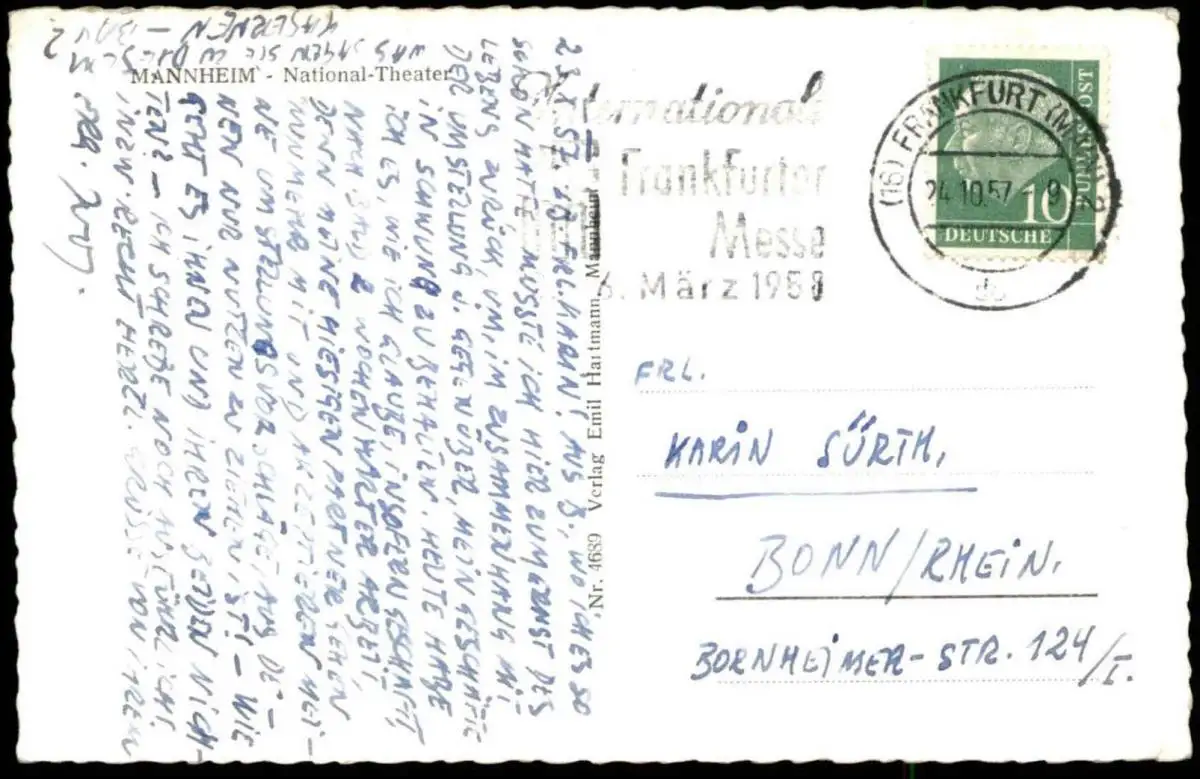 MANNHEIM - National-Theater
23.X.57. LB. FRL. KARIN! AUS B., WO ICH ES SO
SCHÖN HATTE MUSSTE ICH HIER ZUM ERNST DES
LEBENS ZURÜCK, UM, IM ZUSAMMENHANG MIT
DER UMSTELLUNG U. GEGENÜBER, MEIN GESCHÄFT
IN SCHWUNG ZU BEHALTEN. HEUTE HABE
ICH ES, WIE ICH GLAUBE, INSOFERN GESCHAFFT,
NACH BALD 2 WOCHEN HARTER ARBEIT,
DENN MEINE HIESIGEN PARTNER GEHEN
NUNMEHR MIT UND AKZEPTIEREN MEI-
NE UMSTELLUNGSVORSCHLÄGE, AUS DE-
NEN NUR NUTZEN ZU ZIEHEN IST! - WIE
GEHT ES IHNEN UND IHREN BEIDEN NICH-
TEN? - ICH SCHREIBE NOCH AUSFÜHRLICH!
IHNEN RECHT HERZL. GRÜSSE VON IHREM
WAS SAGEN SIE ZU DIESEM
KASERNEN - BAU?
Nr. 4689 Verlag Emil Hartmann, Mannheim
Internationale
Frankfurter
Messe
6. März 1958
(16) FRANKFURT (MAIN) 2
24.10.57. - 9
db
10
DEUTSCHE
BUNDESPOST
FRL.
KARIN SÜRTH,
BONN/RHEIN.
BORNHEIMER-STR. 124/I.